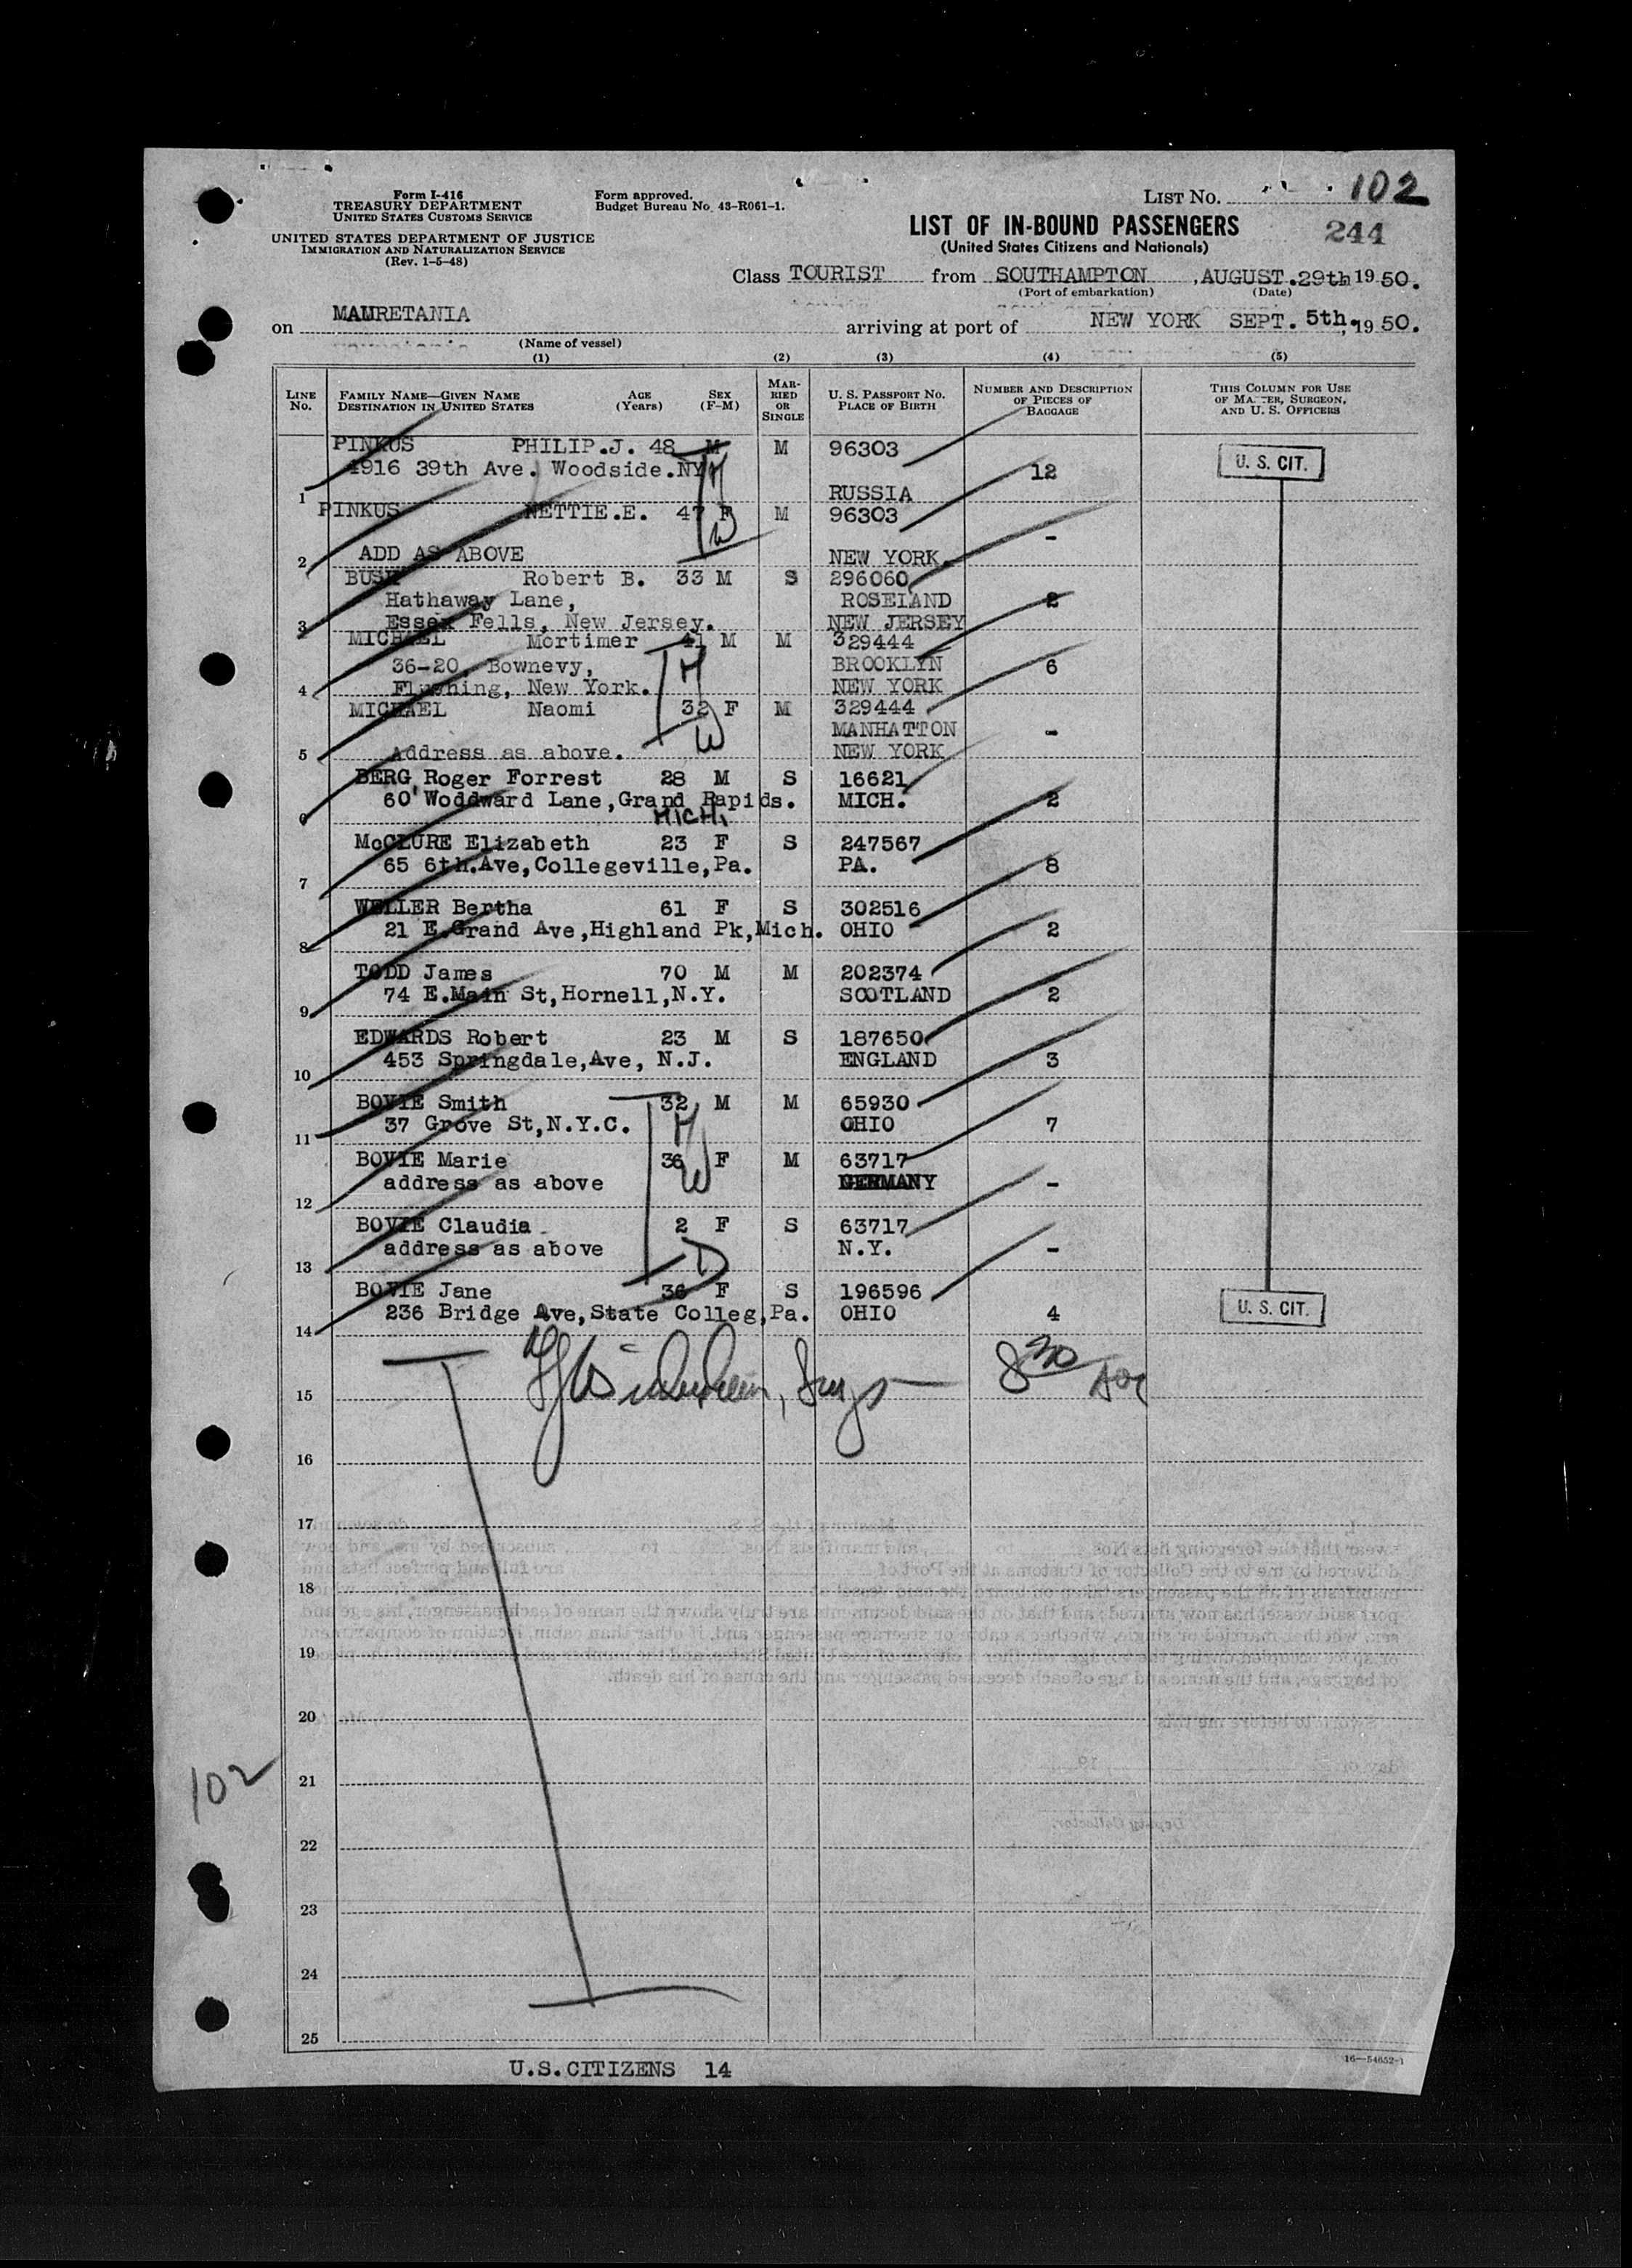 Form I-416
TREASURY DEPARTMENT
UNITED STATES CUSTOMS SERVICE
UNITED STATES DEPARTMENT OF JUSTICE
IMMIGRATION AND NATURALIZATION SERVICE
(Rev. 1-5-48)
Form approved.
Budget Bureau No. 43-R061-1.
LIST No. 102
LIST OF IN-BOUND PASSENGERS
244
(United States Citizens and Nationals)
Class TOURIST from SOUTHAMPTON, AUGUST.29th 1950.
(Port of embarkation) (Date)
on MAURETANIA arriving at port of NEW YORK SEPT. 5th, 1950.
(Name of vessel)
(1) (2) (3) (4) (5)
LINE No. FAMILY NAME—GIVEN NAME DESTINATION IN UNITED STATES AGE (Years) SEX (F-M) MARRIED OR SINGLE U. S. PASSPORT NO. PLACE OF BIRTH NUMBER AND DESCRIPTION OF PIECES OF BAGGAGE THIS COLUMN FOR USE OF MASTER, SURGEON, AND U. S. OFFICERS
PINKUS PHILIP.J. 48 M M 96303 U. S. CIT.
4916 39th Ave. Woodside.NY H 12
1 RUSSIA
PINKUS NETTIE.E. 47 F M 96303
W -
2 ADD AS ABOVE NEW YORK.
BUSH Robert B. 33 M S 296060
Hathaway Lane, ROSELAND 2
3 Essex Fells, New Jersey. NEW JERSEY
MICHAEL Mortimer 41 M M 329444
36-20, Bownevy, H BROOKLYN 6
4 Flushing, New York. NEW YORK
MICHAEL Naomi 32 F M 329444
W MANHATTON -
5 Address as above. NEW YORK
BERG Roger Forrest 28 M S 16621
60 Woddward Lane,Grand Rapids. MICH. 2
6 MICH.
McCLURE Elizabeth 23 F S 247567
65 6th.Ave,Collegeville,Pa. PA. 8
7
WELLER Bertha 61 F S 302516
21 E.Grand Ave,Highland Pk,Mich. OHIO 2
8
TODD James 70 M M 202374
74 E.Main St,Hornell,N.Y. SCOTLAND 2
9
EDWARDS Robert 23 M S 187650
453 Springdale,Ave, N.J. ENGLAND 3
10
BOVIE Smith 32 M M 65930
37 Grove St,N.Y.C. H OHIO 7
11
BOVIE Marie 36 F M 63717
address as above W GERMANY -
12
BOVIE Claudia 2 F S 63717
address as above D N.Y. -
13
BOVIE Jane 36 F S 196596
236 Bridge Ave,State Colleg,Pa. OHIO 4 U. S. CIT.
14
15 8 30
16
17
18
19
20
21
102
22
23
24
25
16—54652-1
U.S.CITIZENS 14